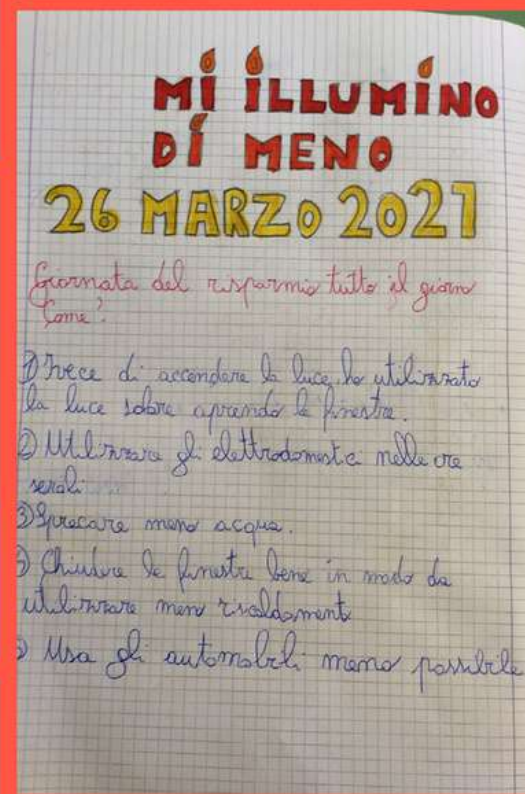 MI ILLUMINO
DI MENO
26 MARZO 2021
Giornata del risparmio tutto il giorno
Come?
① Invece di accendere la luce, ho utilizzato
la luce solare aprendo le finestre.
② Utilizzare gli elettrodomestici nelle ore
serali.
③ Sprecare meno acqua.
④ Chiudere le finestre bene in modo da
utilizzare meno riscaldamento
⑤ Usa gli automobili meno possibile